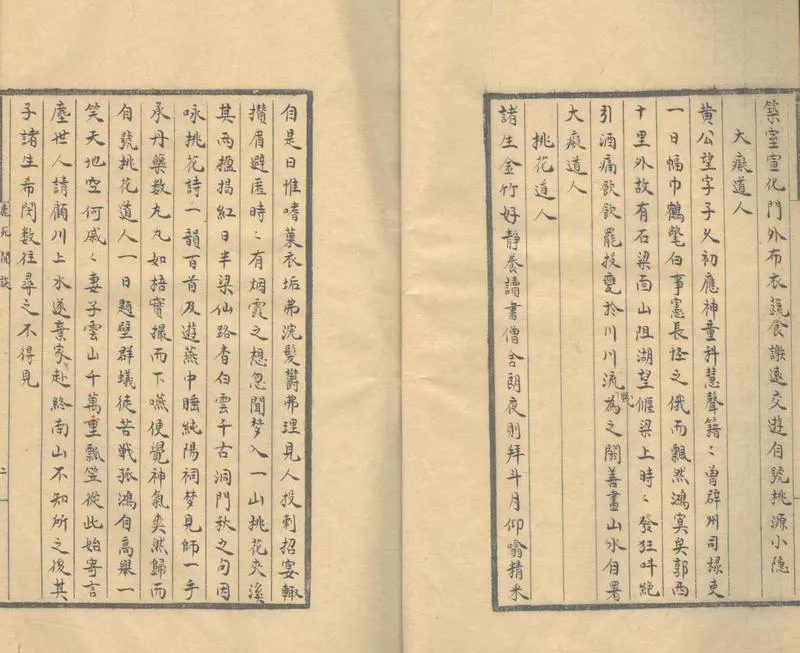 築室宣化門外布衣蔬食謝遠交遊自號桃源小隱
大癡道人
黄公望字子久初應神童科慧聲籍〻曾辟州司掾吏
一日幅巾鶴氅白事憲長怪之俄而飄然鴻冥矣郭西
十里外故有石梁面山阻湖望偃梁上時〻發狂叫絶
引酒痛飲飲罷投甕於川川流為之闕善畫山水自署
幾
大癡道人
桃花道人
諸生金竹好静養讀書僧舍朗夜則拜斗月仰噏精米
自是日惟嗜菓衣垢弗浣髮鬱弗理見人投刺招宴輙
攢眉避匿時〻有烟霞之想忽聞梦入一山桃花夾溪
其兩楹揭紅日半梁仙路杳白雲千古洞門秋之句因
咏桃花詩一韻百首及遊燕中睡純陽祠梦見師一手
承丹藥数丸丸如梧實撮而下嚥便覺神氣奕然歸而
自號桃花道人一日題壁群蟻徒苦戦孤鴻自高舉一
笑天地空何戚〻妻子雲山千萬重瓢笠從此始寄言
塵世人請顧川上水遂棄家赴終南山不知所之後其
子諸生希閔数往尋之不得見
二